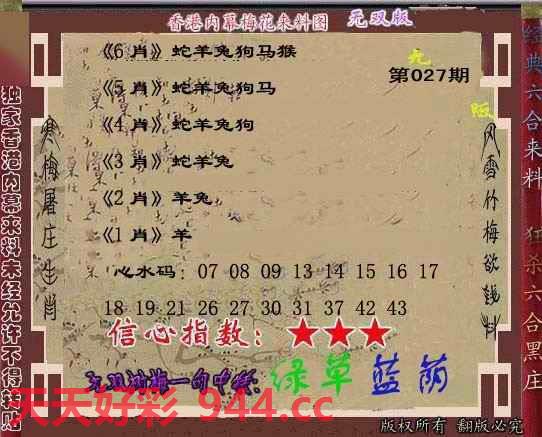 香港内幕梅花来料图 无双版
《6 肖》蛇羊兔狗马猴
第027期
《5 肖》蛇羊兔狗马
《4 肖》蛇羊兔狗
《3 肖》蛇羊兔
《2 肖》羊兔
《1 肖》羊
心水码: 07 08 09 13 14 15 16 17
18 19 21 26 27 30 31 37 42 43
信心指数: ★★★
绿草蓝荫
天天好彩 944.cc
版权所有 翻版必究
独家香港内幕来料未经允许不得转贴
寒梅屠庄生肖
风雪竹梅欲钱料
经典六合来料
狂杀六合黑庄